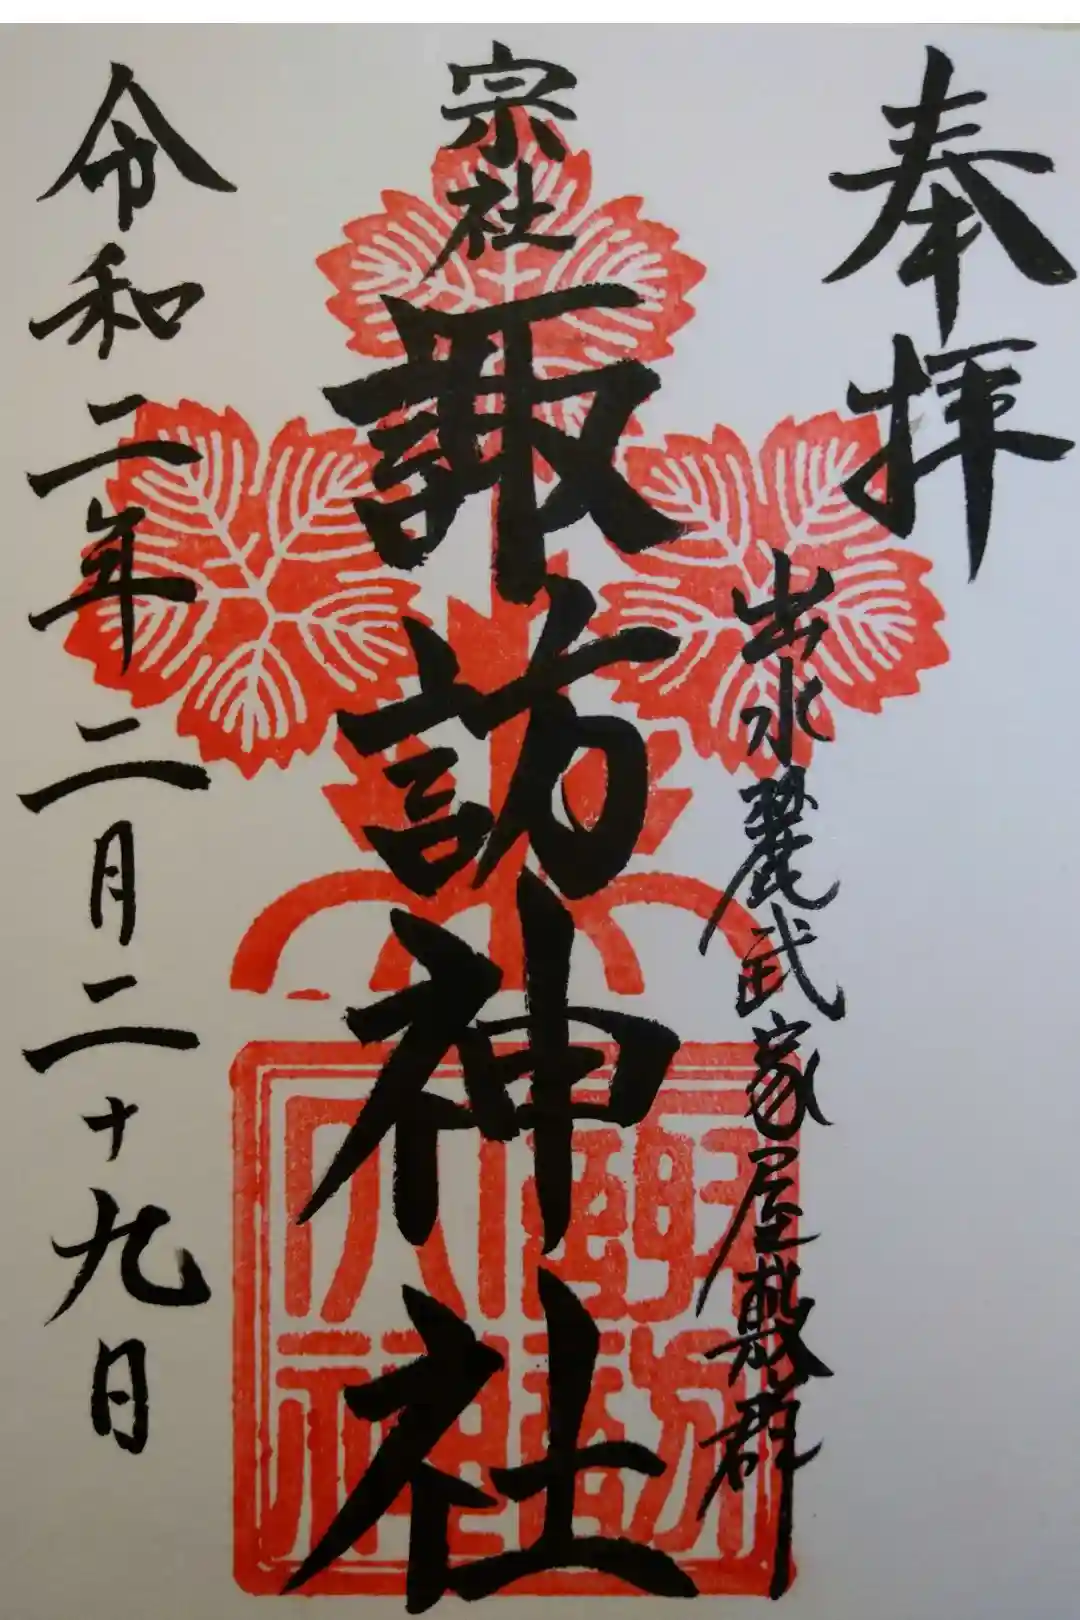 奉拝
出水麓武家屋敷群
宗社
諏訪神社
令和二年二月二十九日